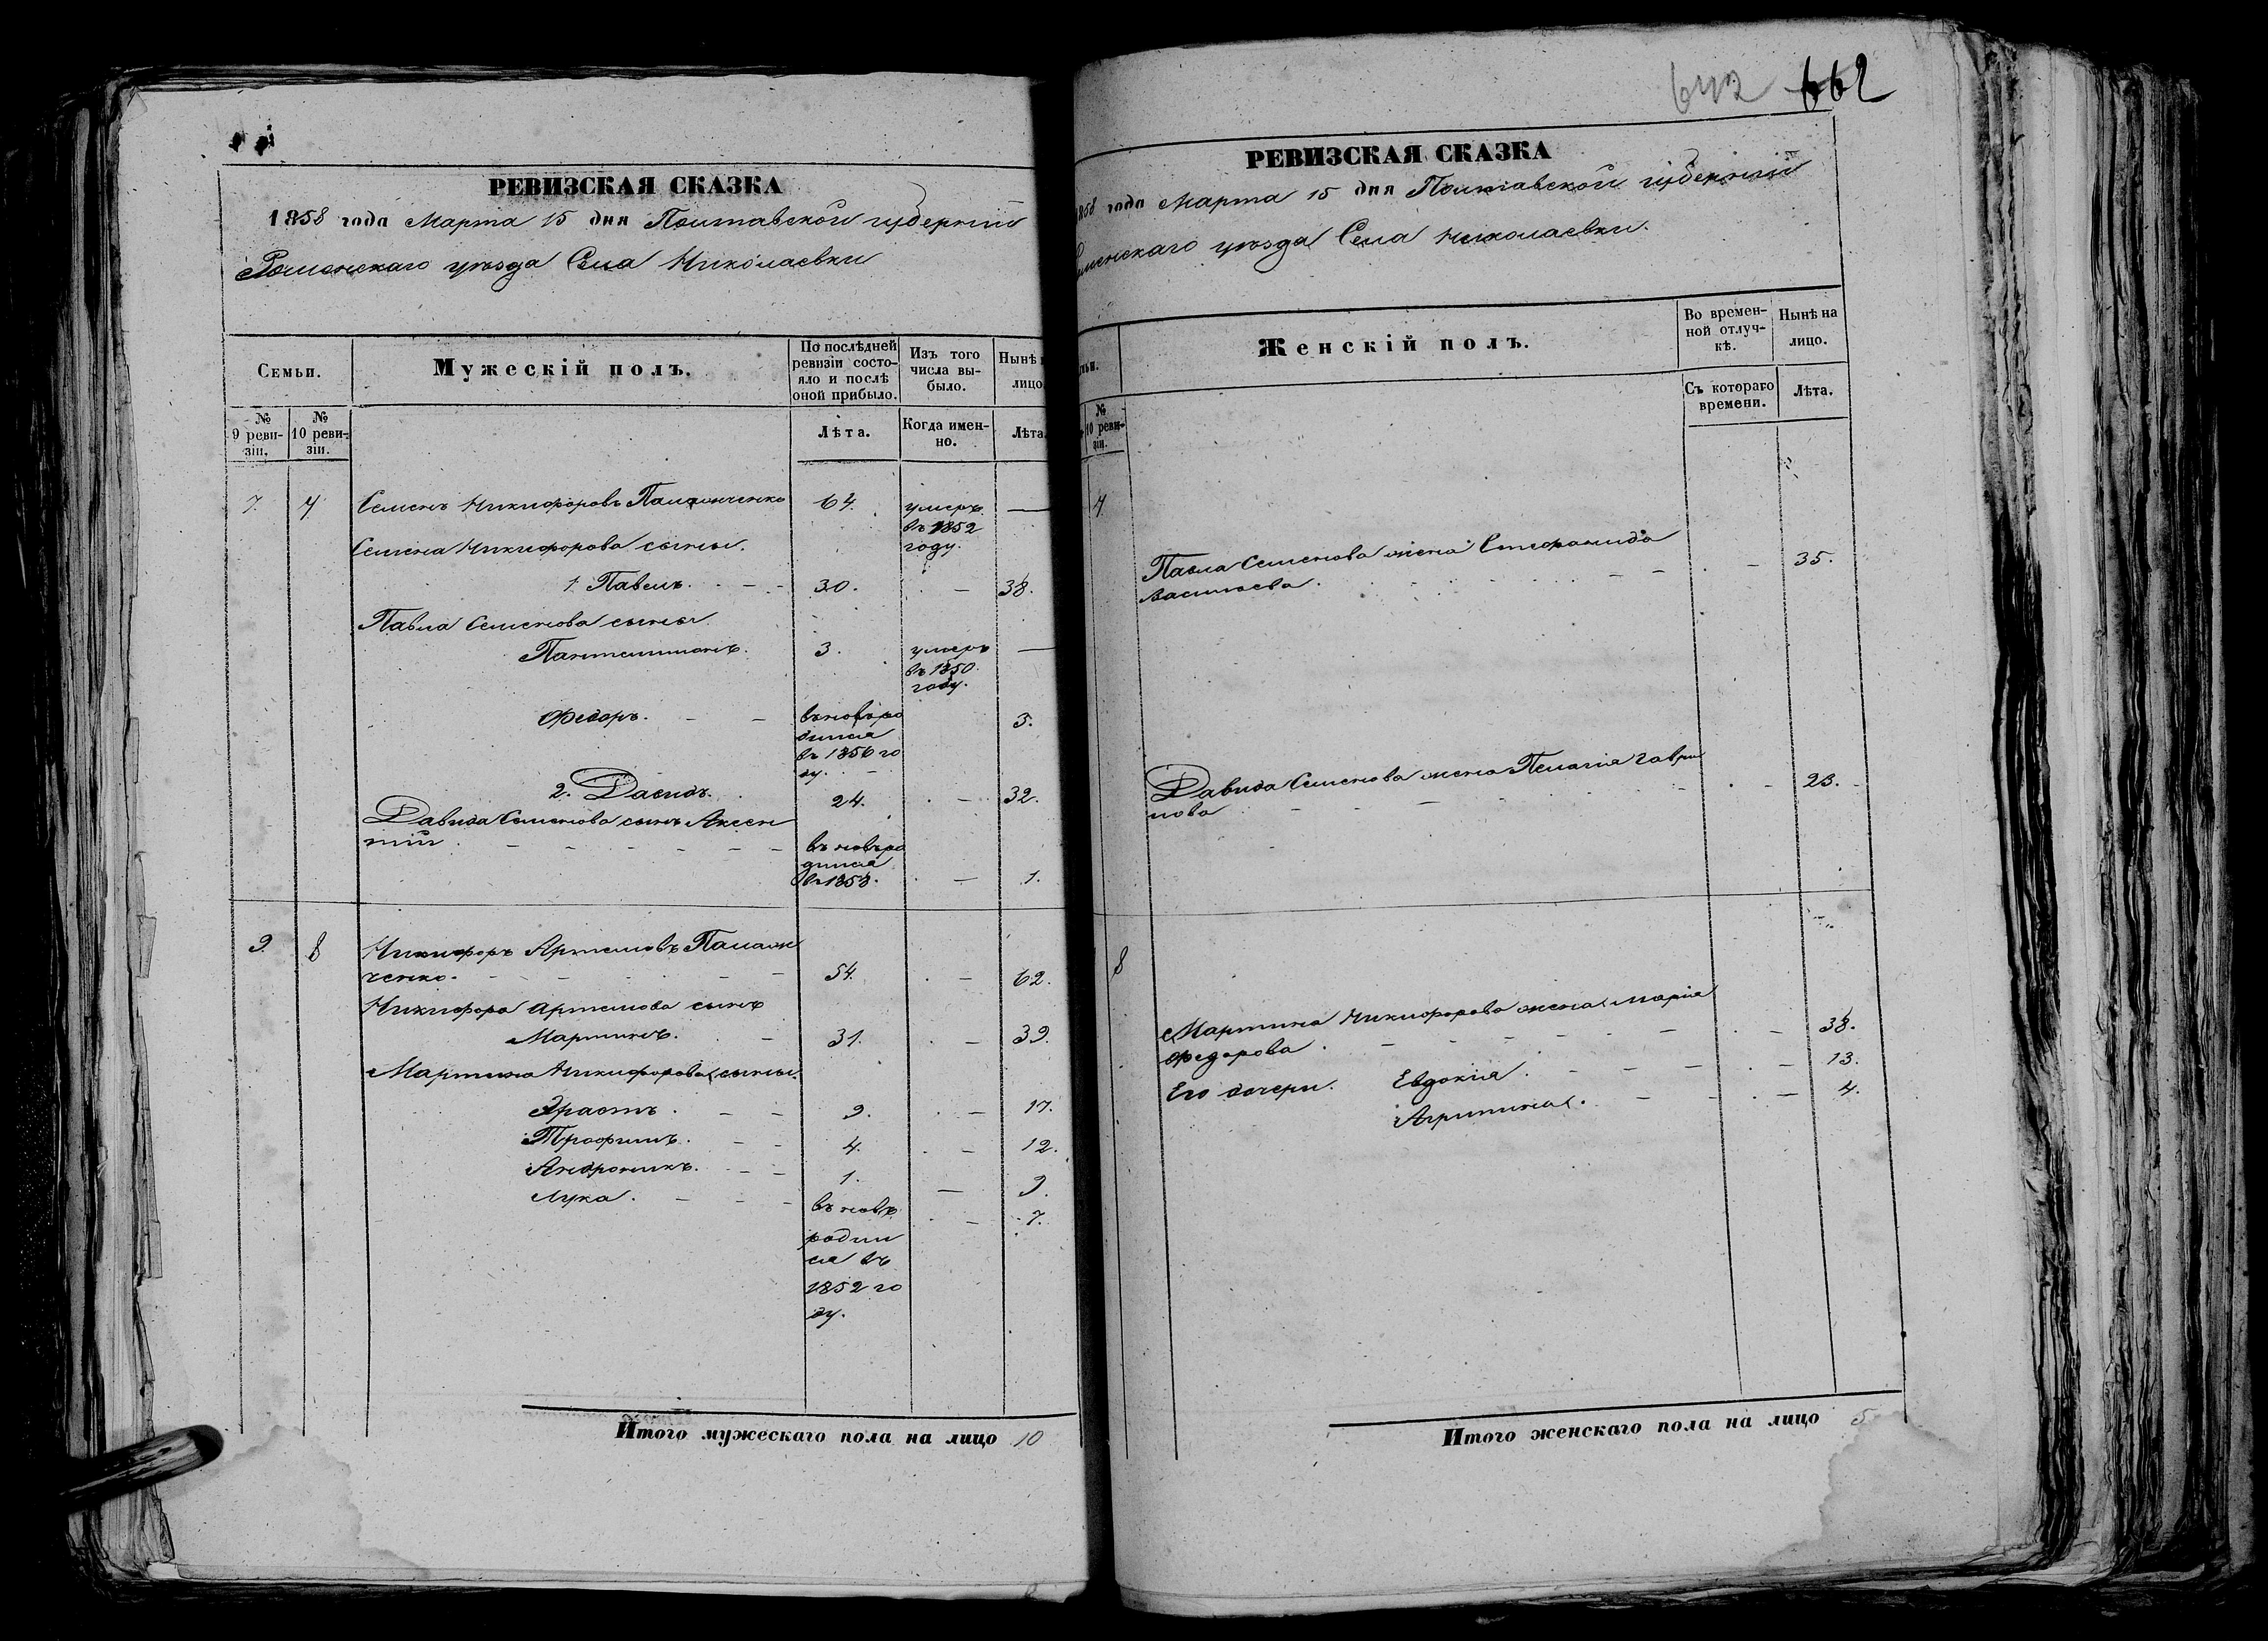 РЕВИЗСКАЯ СКАЗКА
1858 года Марта 15 дня Полтавской губерніи
Роменскаго уѣзда Села Николаевки
Семьи.
Мужескій полъ.
По послѣдней ревизіи состояло и послѣ оной прибыло.
Изъ того числа выбыло.
Нынѣ
лицо
№ 9 ревизіи.
№ 10 ревизіи.
Лѣта.
Когда именно.
Лѣта
7. 7 Семенъ Никифоровъ 64. умеръ въ 1852 году. —
Семена Никифорова сыны.
1. Павелъ. 30. — 38.
Павла Семенова сыны
Пантелимонъ. 3. умеръ въ 1850 году. —
Федоръ. въ новѣ родился въ 1856 году. 3.
2. Давидъ. 24. — 32.
Давида Семенова сынъ Аксен
тій въ новѣ родился въ 1858. — 1.
9. 8 Никифоръ Артемовъ
ченко. 54. — 62.
Никифора Артемова сынъ
Мартинъ. 31. — 39.
Мартина Никифорова сыны.
Эрастъ. 9. — 17.
Трофимъ. 4. — 12.
Андроникъ. 1. — 9.
Лука. въ новѣ родился въ 1852 году. — 7.
Итого мужескаго пола на лицо 10
642 662
РЕВИЗСКАЯ СКАЗКА
1858 года Марта 15 дня Полтавской губерніи
менскаго уѣзда Села Николаевки.
Женскій полъ.
Во временной отлучкѣ.
Нынѣ на лицо.
№ 10 ревизіи.
Съ котораго времени.
Лѣта.
7
Павла Семенова жена Стефанида
Васильева. — 35.
Давида Семенова жена Пелагія Гаври
лова — 23.
8
Мартина Никифорова жена Марія
Федорова. — 38.
Его дочери. Евдокія. — 13.
Агрипина. — 4.
Итого женскаго пола на лицо 5